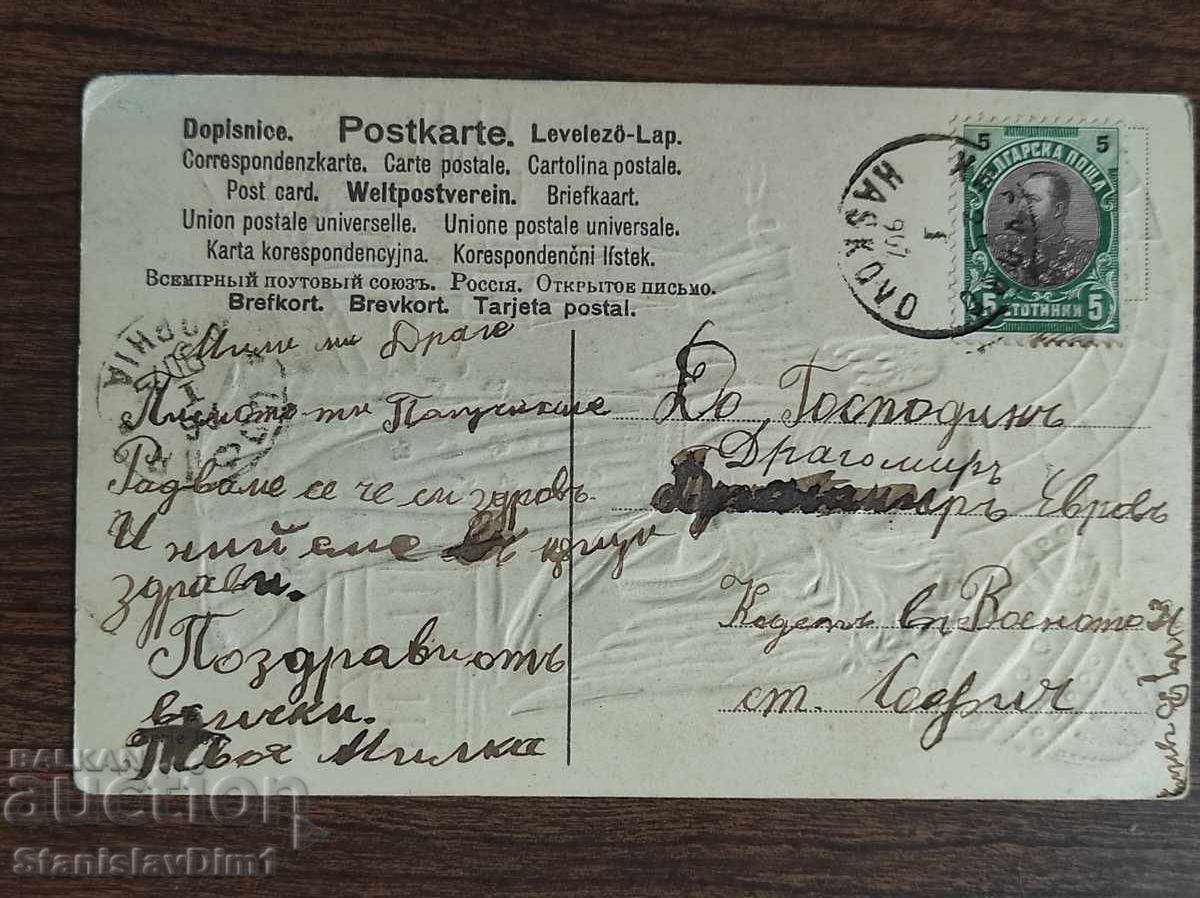 Dopisnice. Postkarte. Levelező-Lap.
Correspondenzkarte. Carte postale. Cartolina postale.
Post card. Weltpostverein. Briefkaart.
Union postale universelle. Unione postale universale.
Karta korespondencyjna. Korespondenčni lístek.
Всемірный поутовый союзъ. Россія. Открытое письмо.
Brefkort. Brevkort. Tarjeta postal.
5 5
БЪЛГАРСКА ПОЩА
5 СТОТИНКИ 5
HASKOVO
SOPHIA
Мили ми Драге
Писмото ти Получихме
Радваме се че си здравъ.
И ний сме
здрави.
Поздрави отъ
всички.
Твоя Милка
До Господинъ
Драгомиръ
Евровъ
Кадетъ въ Военото
ст. София
BALKAN
auction
StanislavDim1